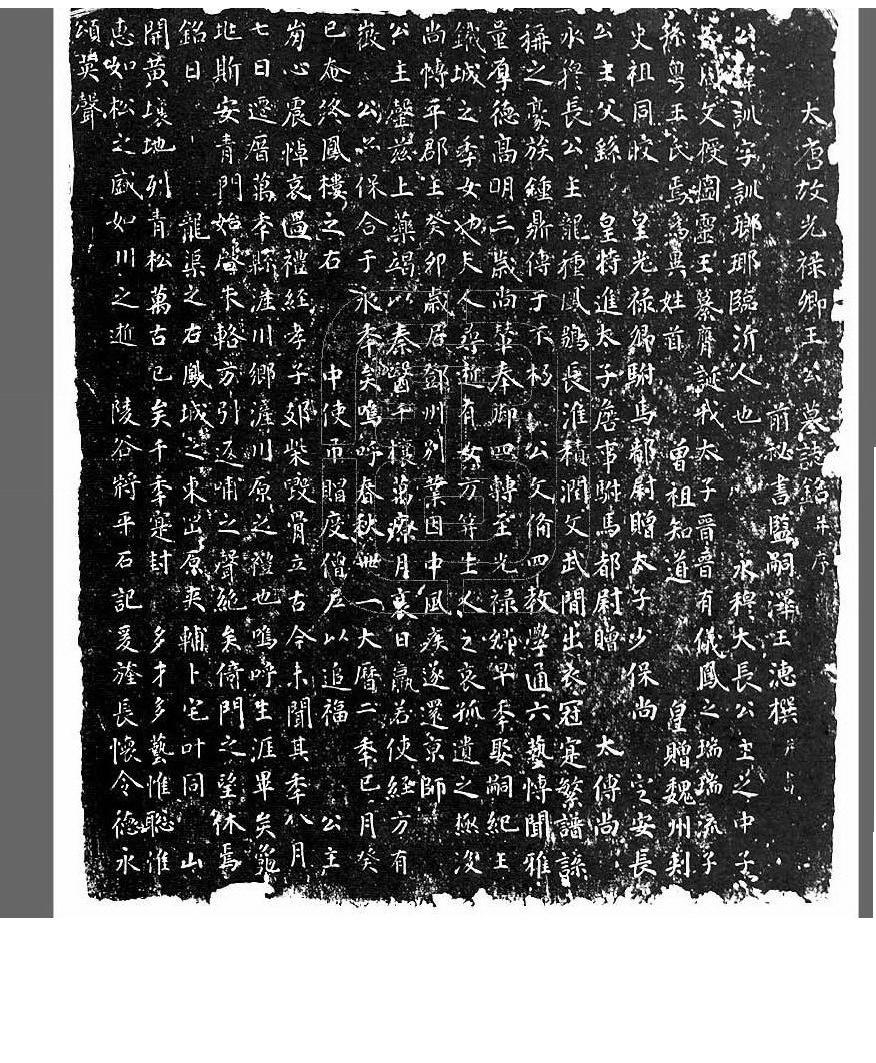 大唐故光祿卿王公墓誌銘并序
前祕書監嗣澤王漶撰
公諱訓字訓瑯琊臨沂人也 永穆大長公主之中子
文授圖靈王纂膺誕我太子晉晉有儀鳳之瑞瑞流子
孫粵王氏焉為異姓首 曾祖知道 皇贈魏州刺
史祖同皎 皇光祿卿駙馬都尉贈太子少保尚 定安長
公主父繇 皇特進太子詹事駙馬都尉贈 太傅尚
永穆長公主龍種鳳鶵長淮積潤文武間出衣冠寔繁譜諜
稱之豪族鍾鼎傳于不朽 公文備四教學通六藝博聞雅
量厚德高明三歲尚輦奉御四轉至光祿卿早年娶嗣紀王
鐵城之季女也夫人尋逝有女方笄生人之哀孤遺之極後
尚博平郡主癸卯歲居鄧州別業因中風疾遂還京師
公主罄茲上藥竭以秦醫千櫰萬療月衰日羸若使經方有
徵 公必保合于永年矣嗚呼春秋卌一大曆二年巳月癸
巳奄終鳳樓之右 中使弔贈度僧尼以追福 公主
崩心震悼哀過禮經孝子郊柴毀骨立古今未聞其年八月
七日遷厝萬年縣滻川鄉滻川原之禮也嗚呼生涯畢矣窀
地斯安青門始啓朱輅方引返哺之聲絶矣倚門之望休焉
銘曰 龍渠之右鳳城之東出原夾輔卜宅叶同 山
開黃壤地列青松萬古已矣千季寔封 多才多藝惟聡惟
惠如松之盛如川之逝 陵谷將平石記爰旌長懷令德永
頌英聲